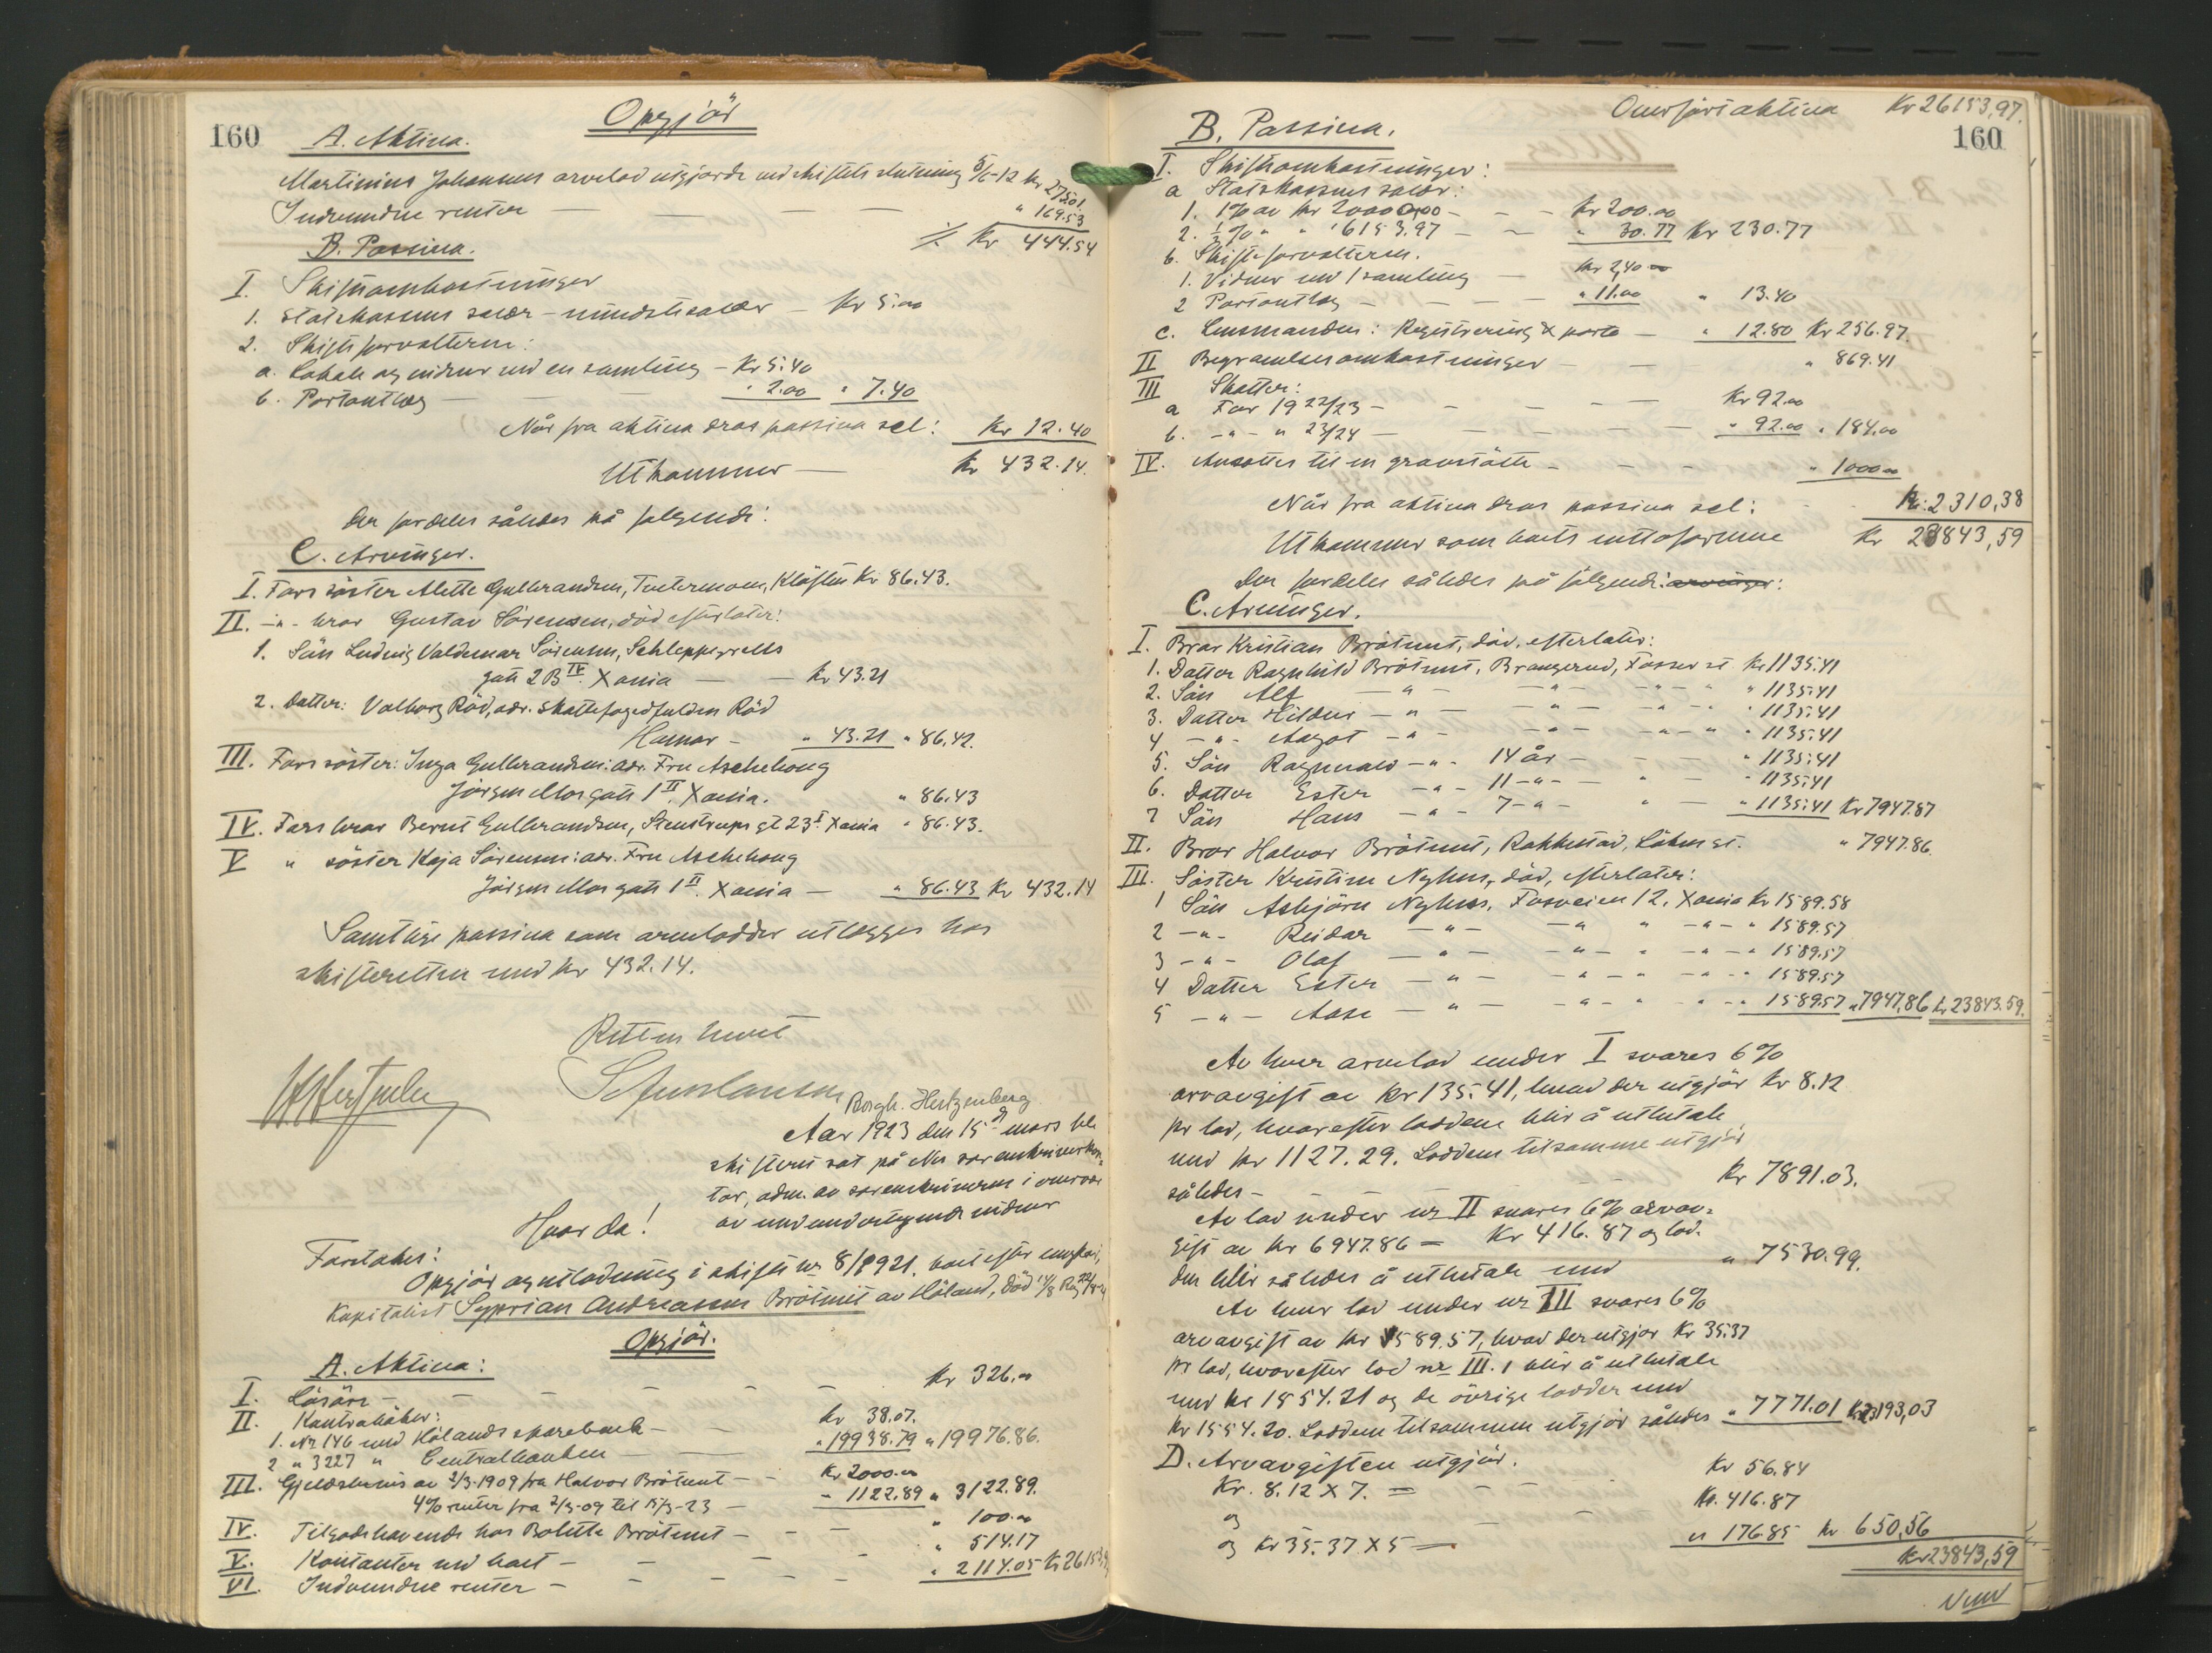 160
Opgjör
A. Aktiva.
Martinius Johansens arvelod utgjorde ved skiftets slutning 5/6-12 kr 275.01
Indvundne renter — — — — " 169.53
% Kr 444.54
B. Passiva.
I. Skifteomkostninger
1. Statskassens salær – mindstesalær – Kr 5.00
2. Skifteforvalteren:
a. Lokale og vidner ved en samling – Kr 5.40
b. Portoutlæg — — " 2.00 " 7.40
Når fra aktiva dras passiva sel: Kr 12.40
Utkommer — Kr 432.14.
der fordeles således på følgende:
C. Arvinger.
I. Fars söster Alette Gulbrandsen, Teetermoen, Klöften Kr 86.43.
II. -"- bror Gustav Sörensen, död efterlater:
1. Sön Ludvig Valdemar Sörensen, Schleppegrells
gate 2B IV. Xania — — Kr 43.21
2. Datter: Valborg Röd, adr. skattefogedfuldm Röd
Hamar – " 43.21 " 86.42.
III. Fars söster: Inga Gulbrandsen: adr. Fru Aschehoug
Jörgen Moes gate 1 II. Xania. " 86.43
IV. Fars bror Bernt Gulbrandsen, Stenstrups gt 23 I. Xania " 86.43.
V " söster Kaja Sörensen: adr. Fru Aschehoug
Jörgen Moes gate 1 II. Xania — " 86.43 Kr 432.14
Samtlige passiva som arvelodder utlægges hos
skifteretten med kr 432.14.
Retten hevet
Borgh. Hertzenberg
Aar 1923 den 15de mars ble
skifteret sat på Nes sorenskriverkon-
tor, adm. av sorenskriveren i overvær
av medundertegnede vidner
Hvor da!
Foretokes:
Opgjör og utlodning i skifte nr 8/1921. boet efter ungkar,
Kapitalist Syprian Andreasen Bråtnes av Höland, död 14/8
Opgjör.
A. Aktiva:
I. Lösöre – — — — — Kr 326.00
II. Kontraböker:
1. Nr 146 med Hölands sparebank – — Kr 38.07.
2 " 3227 " Centralbanken — " 19938.79 " 19976.86.
III. Gjeldsbrevis av 2/3-1909 fra Halvor Bråtnes – – Kr 2000.00
4% renter fra 2/3-09 til 15/3-23 – " 1122.89 " 3122.89.
IV. Tilgodehavende hos Bolette Bråtnes – — " 100.00
V. Kontanter ved boet – — — — " 514.17
VI. Indvundne renter – — — — " 2114.05 Kr 26153,9
Overført aktiva Kr 26153,97.
160
B. Passiva.
I. Skifteomkostninger:
a Statskassens salær:
1. 1% av kr 20000,00 – – – Kr 200.00
2. ½ % " " 6153.97 – – " 30.77 Kr 230.77
b. Skifteforvalteren.
1. Vidner ved 1 samling — Kr 2,40
2 Portoutlæg – — — " 11.00 " 13.40
c. Lensmanden: Registrering & porto — " 12.80 Kr 256.97.
II Begravelsesomkostninger — — " 869.41
III Skatter:
a For 1922/23 – — — Kr 92.00
b. -"- " 23/24 — — — " 92.00 " 184.00
IV. Avsættes til en gravstötte – — — " 1000.00
Når fra aktiva dras passiva sel: Kr: 2310,38
Utkommer som boets nettoformue Kr 23843,59
Der fordeles således på følgende: arvinger:
C. Arvinger.
I. Bror Kristian Bråtnes, död, efterlater:
1. Datter Ragnhild Bråtnes, Brangerud, Fosser st Kr 1135.41
2. Sön Alf -"- -"- -"- " 1135.41
3. Datter Hildur -"- -"- -"- " 1135.41
4 -"- Aagot -"- -"- -"- " 1135.41
5. Sön Ragnvald -"- 14 år – — " 1135.41
6. Datter Ester -"- 11 -"- — " 1135.41
7 Sön Hans -"- 7 -"- " — " 1135.41 Kr 7947.87
II. Bror Halvor Bråtnes, Rakkestad, Löken st. " 7947.86.
III. Söster Kristine Nyhus, död, efterlater:
1 Sön Asbjörn Nyhus, Fosveien 12. Xania Kr 1589.58
2 -"- Reidar -"- -"- " -"- " 1589.57
3 -"- Olaf -"- -"- " -"- " 1589.57
4 Datter Ester -"- -"- " -"- " 1589.57
5 -"- Aase -"- -"- " -"- " 1589.57 " 7947,86 Kr 23843.59.
Av hver arvelod under I svares 6%
arveavgift av kr 135.41, hvad der utgjör Kr 8.12
pr lod, hvorefter loddene blir å utbetale
med kr 1127.29. Loddene tilsammen utgjör
således – — — Kr 7891.03.
Av lod under nr II svares 6% arveav-
gift av Kr 6947.86 = Kr 416.87 og lod-
den blir således å utbetale med " 7530.99.
Av hver lod under nr III svares 6%
arveavgift av kr 589.57, hvad der utgjør Kr 35.37
pr lod, hvorefter lod nr III. 1 blir å utbetale
med kr 1554.21 og de övrige lodder med
Kr 1554.20. Loddene tilsammen utgjör således " 7771.01 Kr 23193,03
D. Arveavgiften utgjör.
Kr. 8.12 X 7. = — — Kr 56.84
og — — Kr. 416.87
og Kr 35.37 X 5 = " 176.85 Kr 650,56
Kr 23843,59